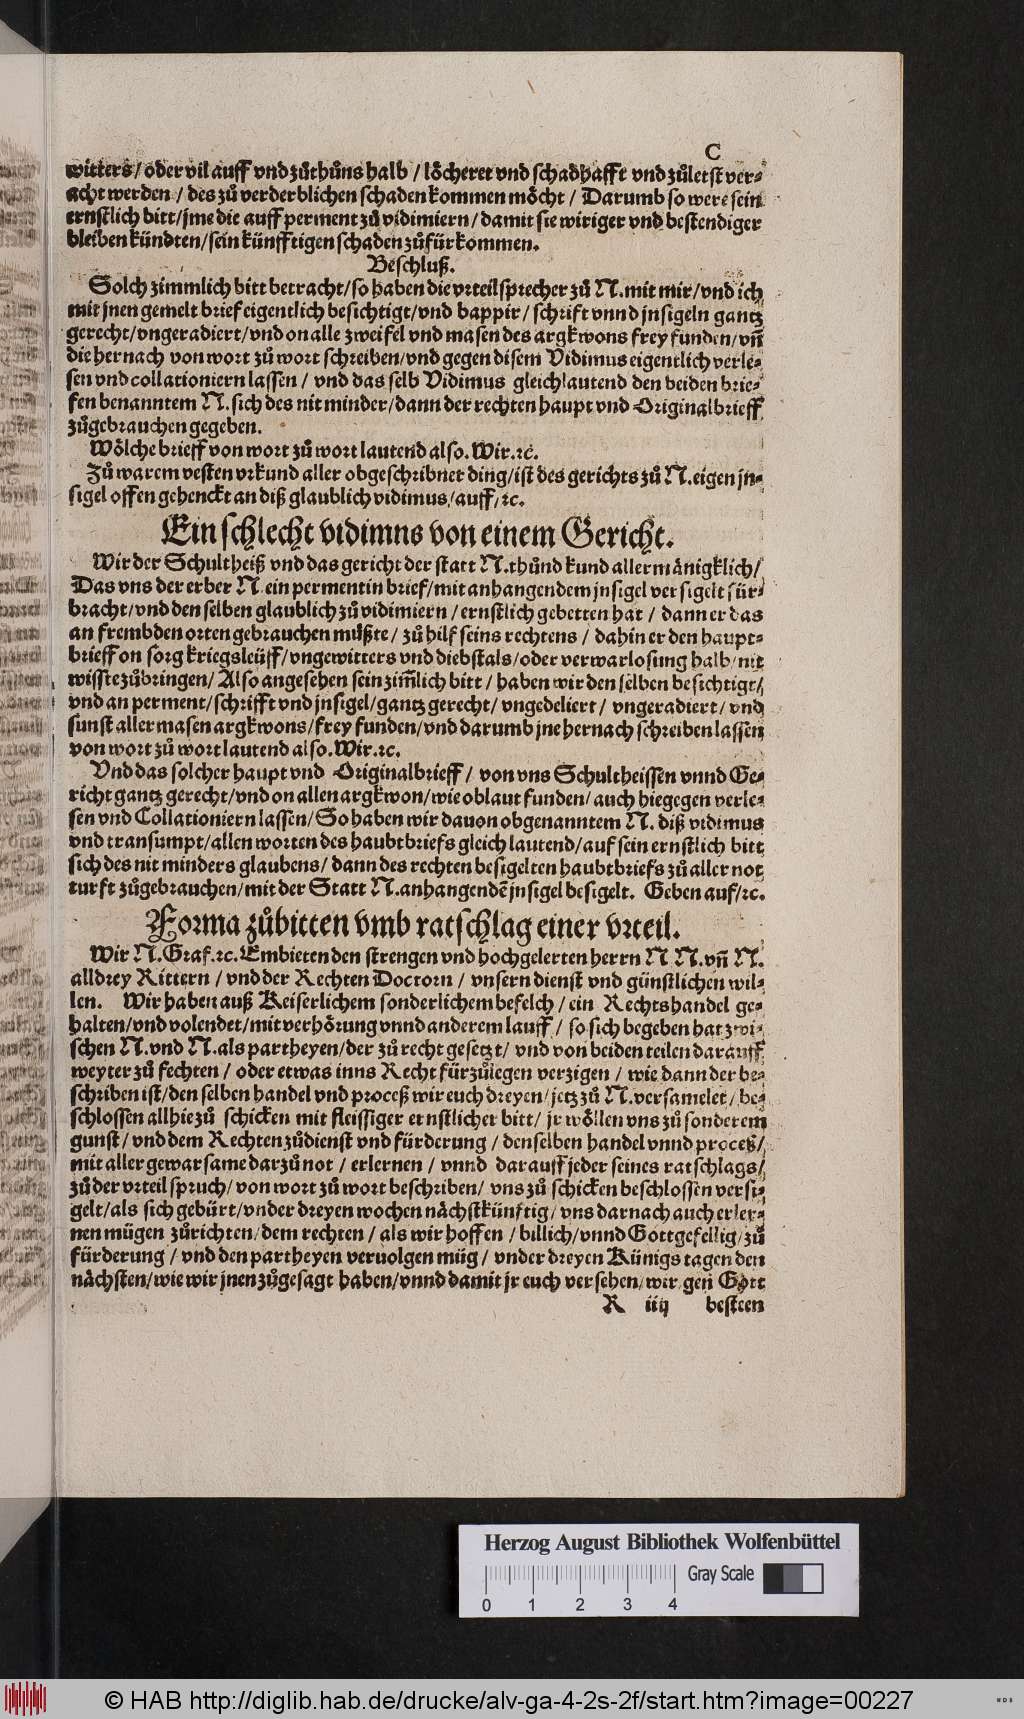 C
witters / oder vil auff vnd zůthůns halb / löcheret vnd schadhafft vnd zůletst ver⸗
acht werden / des zů verderblichen schaden kommen möcht / Darumb so were sein
ernstlich bitt / jme die auff perment zů vidimiern / damit sie wiriger vnd bestendiger
bleiben kündten / sein künfftigen schaden zůfürkommen.
Beschluß.
Solch zimmlich bitt betracht / so haben die vrteilsprecher zů N. mit mir / vnd ich
mit jnen gemelt brief eigentlich besichtigt / vnd bappir / schrift vnnd jnsigeln gantz
gerecht / vngeradiert / vnd on alle zweifel vnd masen des argkwons frey funden / vñ
die hernach von wort zů wort schreiben / vnd gegen disem Vidimus eigentlich verle⸗
sen vnd collationiern lassen / vnd das selb Vidimus gleichlautend den beiden brie⸗
fen benanntem N. sich des nit minder / dann der rechten haupt vnd Originalbrieff
zůgebrauchen gegeben.
Wölche brieff von wort zů wort lautend also. Wir. ꝛc.
Zů warem vesten vrkund aller obgeschribner ding / ist des gerichts zů N. eigen jn⸗
sigel offen gehenckt an diß glaublich vidimus / auff / ꝛc.
Ein schlecht vidimns von einem Gericht.
Wir der Schultheiß vnd das gericht der statt N. thůnd kund allermänigklich /
Das vns der erber N. ein permentin brief / mit anhangendem jnsigel versigelt für⸗
bracht / vnd den selben glaublich zů vidimiern / ernstlich gebetten hat / dann er das
an frembden orten gebrauchen müßte / zů hilf seins rechtens / dahin er den haupt⸗
brieff on sorg kriegsleüff / vngewitters vnd diebstals / oder verwarlosung halb / nit
wisste zůbringen / Also angesehen sein zim̄lich bitt / haben wir den selben besichtigt /
vnd an perment / schrifft vnd jnsigel / gantz gerecht / vngedeliert / vngeradiert / vnd
sunst aller masen argkwons / frey funden / vnd darumb jne hernach schreiben lassen
von wort zů wort lautend also. Wir. ꝛc.
Vnd das solcher haupt vnd Originalbrieff / von vns Schultheissen vnnd Ge⸗
richt gantz gerecht / vnd on allen argkwon / wie oblaut funden / auch hiegegen verle⸗
sen vnd Collationiern lassen / So haben wir dauon obgenanntem N. diß vidimus
vnd transumpt / allen worten des haubtbriefs gleich lautend / auf sein ernstlich bitt
sich des nit minders glaubens / dann des rechten besigelten haubtbriefs zů aller not
turft zůgebrauchen / mit der Statt N. anhangendē jnsigel besigelt. Geben auf / ꝛc.
Forma zůbitten vmb ratschlag einer vrteil.
Wir N. Graf. ꝛc. Embieten den strengen vnd hochgelerten herrn N N. vñ N.
alldrey Rittern / vnd der Rechten Doctorn / vnsern dienst vnd günstlichen wil⸗
len. Wir haben auß Keiserlichem sonderlichem befelch / ein Rechtshandel ge⸗
halten / vnd volendet / mit verhörung vnnd anderem lauff / so sich begeben hat zwi⸗
schen N. vnd N. als partheyen / der zů recht gesetzt / vnd von beiden teilen darauff
weyter zů fechten / oder etwas inns Recht fürzůlegen verzigen / wie dann der be⸗
schriben ist / den selben handel vnd proceß wir euch dreyen / jetz zů N. versamelet / be⸗
schlossen allhie zů schicken mit fleissiger ernstlicher bitt / jr wöllen vns zů sonderem
gunst / vnd dem Rechten zůdienst vnd fürderung / denselben handel vnnd proceß /
mit aller gewarsame darzů not / erlernen / vnnd darauff jeder seines ratschlags /
zů der vrteil spruch / von wort zů wort beschriben / vns zů schicken beschlossen versi⸗
gelt / als sich gebürt / vnder dreyen wochen nächstkünftig / vns darnach auch erler⸗
nen mügen zůrichten / dem rechten / als wir hoffen / billich / vnnd Gottgefellig / zů
fürderung / vnd den partheyen veruolgen müg / vnder dreyen Künigs tagen den
nächsten / wie wir jnen zůgesagt haben / vnnd damit jr euch versehen / wir gen Gott
R iiij besteen
Herzog August Bibliothek Wolfenbüttel
Gray Scale
0 1 2 3 4
© HAB http://diglib.hab.de/drucke/alv-ga-4-2s-2f/start.htm?image=00227
WDB